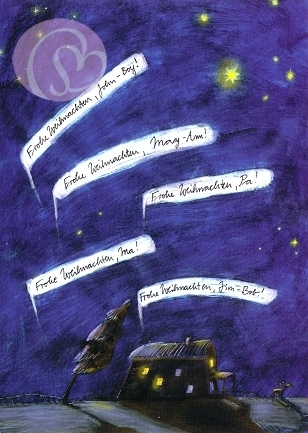 Frohe Weihnachten, John-Boy!
Frohe Weihnachten, Mary-Ann!
Frohe Weihnachten, Pa!
Frohe Weihnachten, Ma!
Frohe Weihnachten, Jim-Bob!